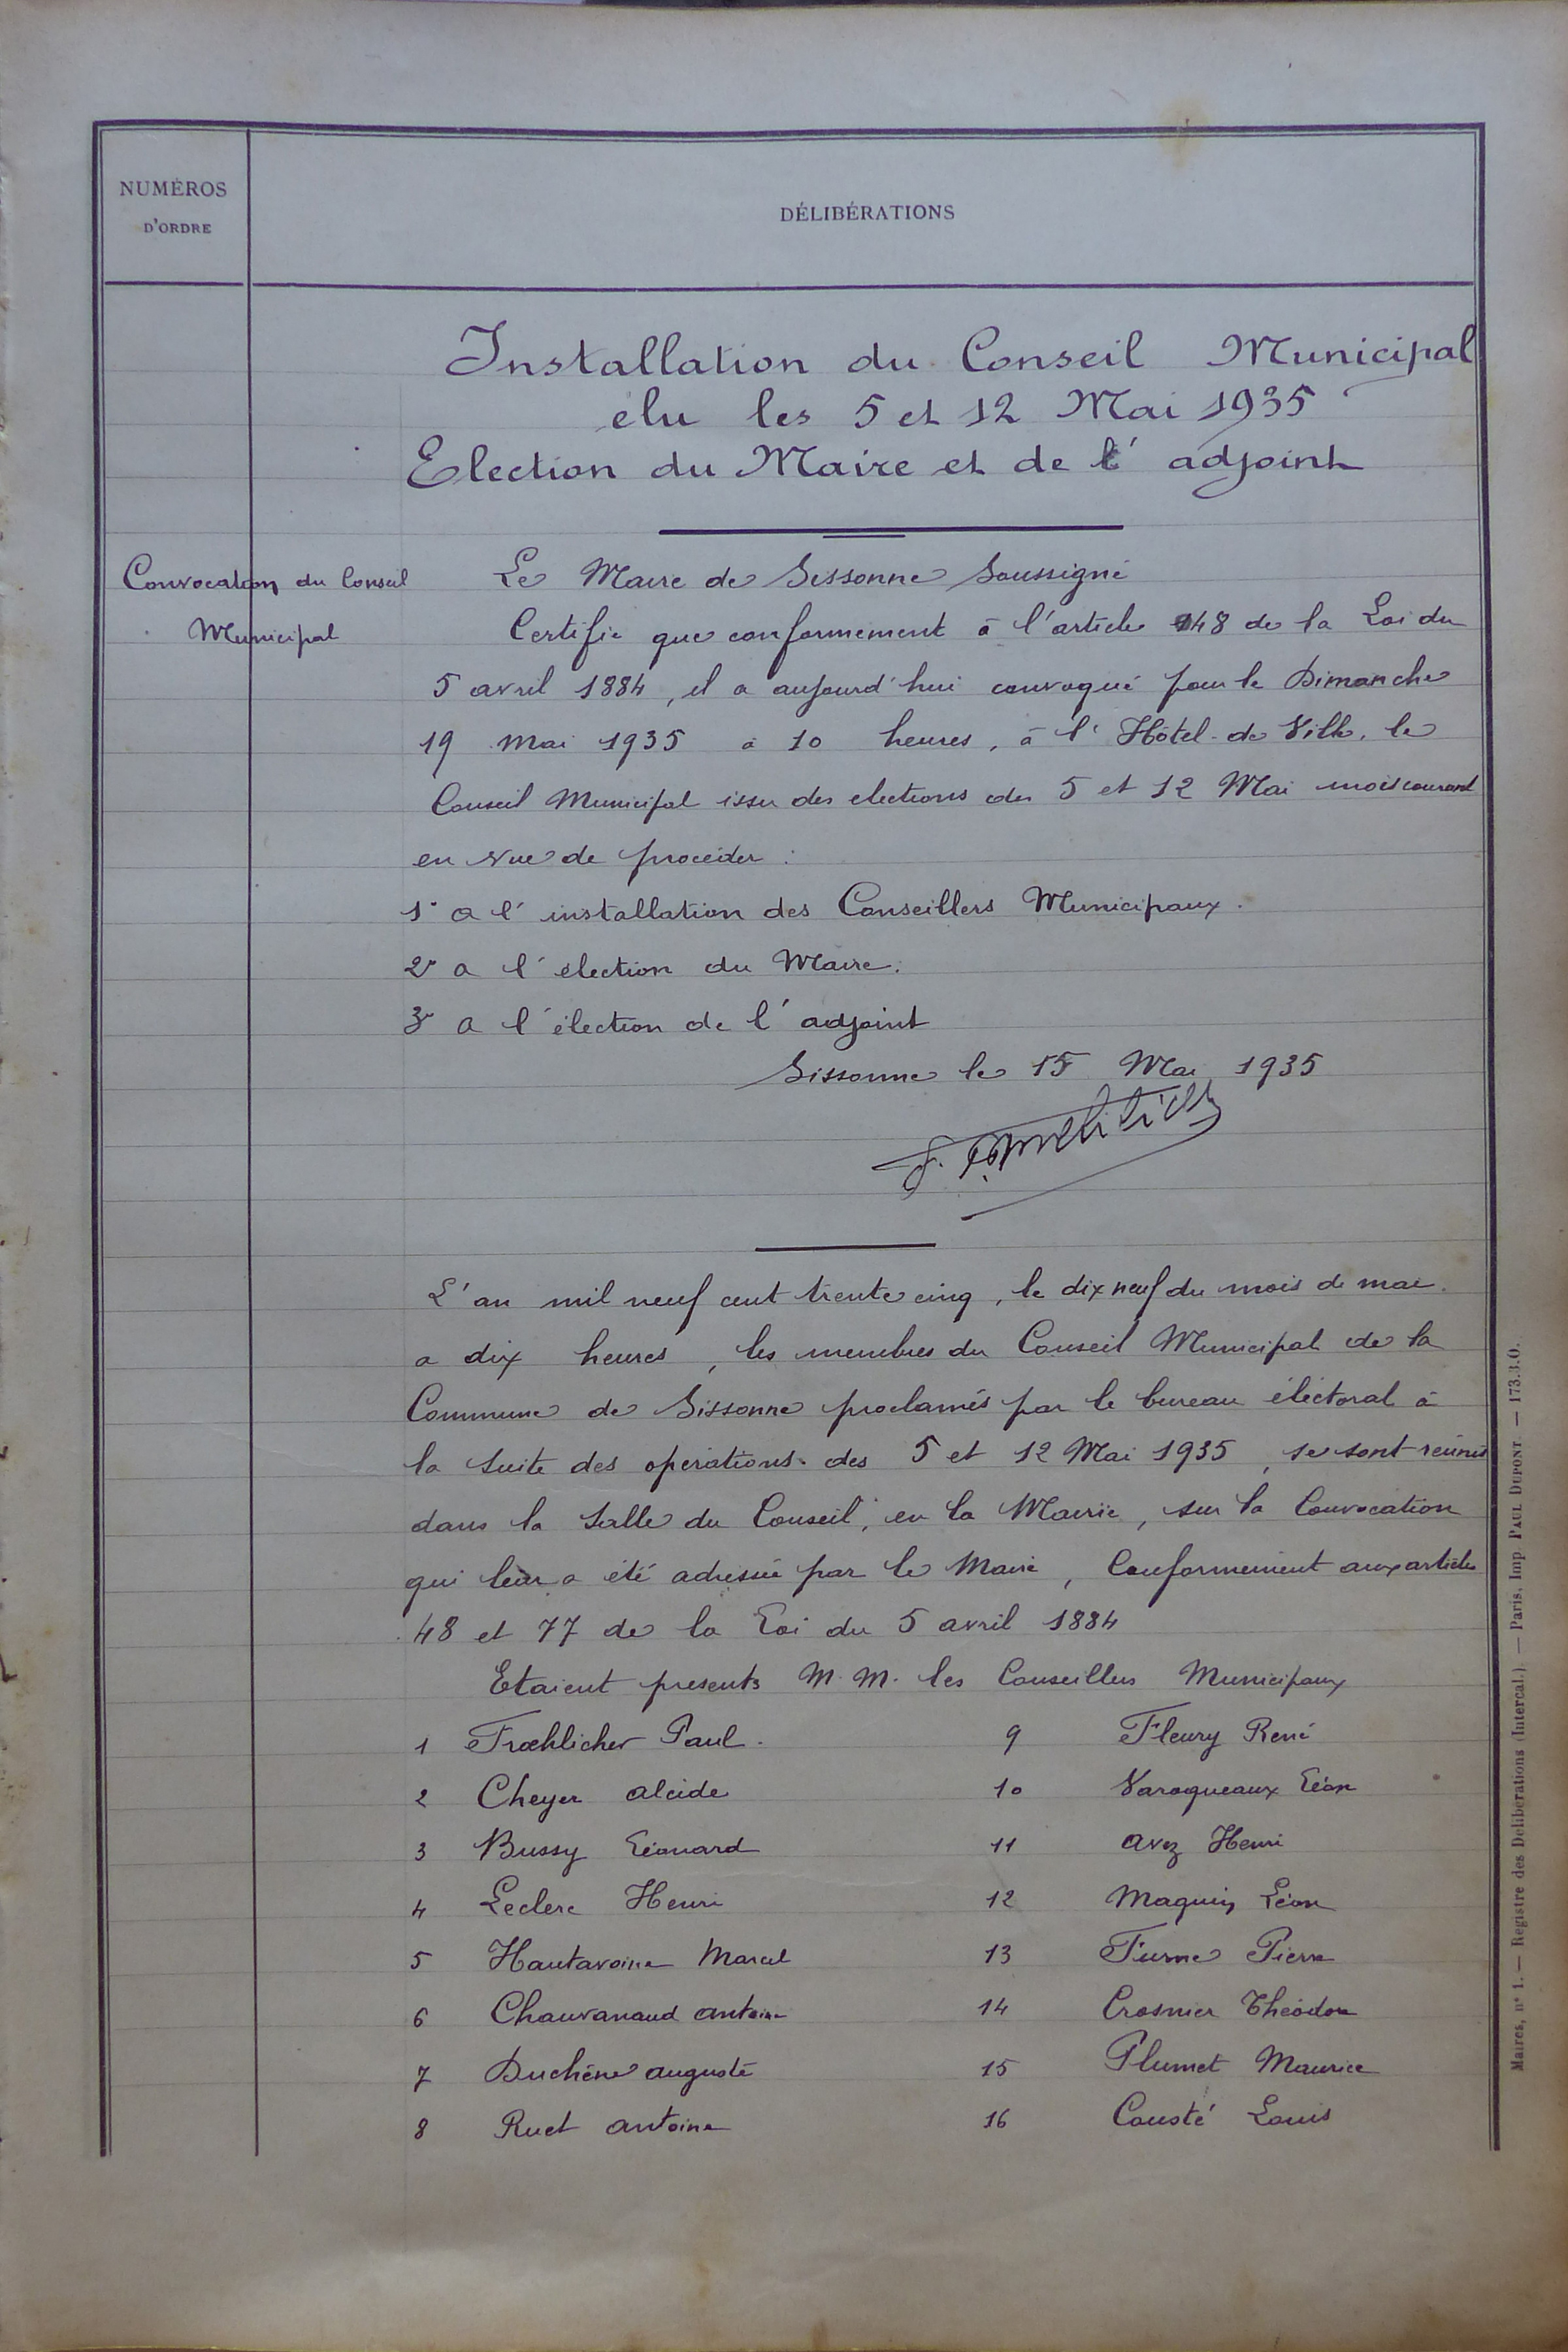 NUMÉROS
D'ORDRE
DÉLIBÉRATIONS
Installation du Conseil Municipal
élu les 5 et 12 Mai 1935
Election du Maire et de l'adjoint
Convocation du Conseil
Municipal
Le Maire de Sissonne Soussigné
Certifie que conformement à l'article 48 de la Loi du
5 avril 1884, il a aujourd'hui convoqué pour le Dimanche
19 mai 1935 à 10 heures, à l'Hôtel-de Ville, le
Conseil Municipal issu des elections des 5 et 12 Mai mois courant
en vue de procéder :
1° a l'installation des Conseillers Municipaux.
2° a l'élection du Maire.
3° a l'élection de l'adjoint
Sissonne le 15 Mai 1935
L'an mil neuf cent trente cinq, le dix neuf du mois de mai.
a dix heures, les membres du Conseil Municipal de la
Commune de Sissonne proclamés par le bureau éléctoral à
la suite des opérations des 5 et 12 Mai 1935, se sont réunis
dans la Salle du Conseil, en la Mairie, sur la Convocation
qui leur a été adressée par le Maire, Conformement aux articles
48 et 77 de la Loi du 5 avril 1884
Etaient presents M.M. les Conseillers Municipaux
1 Frœhlicher Paul.
9 Fleury René
2 Cheyer alcide
10 Varoqueaux Léon
3 Bussy Léonard
11 avez Henri
4 Leclerc Henri
12 Maquin Léon
5 Hautavoine Marcel
13 Furne Pierre
6 Chauvanaud antoine
14 Crosnier Théodore
7 Duchêne auguste
15 Plumet Maurice
8 Ruet antoine
16 Cousté Louis
Maires, n° 1. — Registre des Délibérations (Intercal.). — Paris, Imp PAUL DUPONT. — 173.3.O.